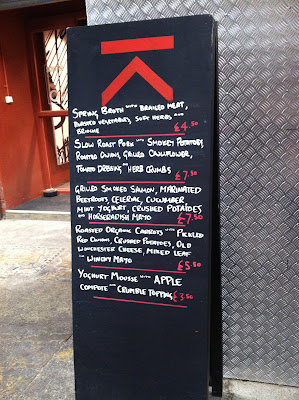 SPRING BROTH WITH BRAISED MEAT,
ROASTED VEGETABLES, SOFT HERBS AND
£4.50
SLOW ROAST PORK WITH SMOKEY POTATOES,
ROASTED ONIONS, GRILLED CAULIFLOWER,
TOMATO DRESSING AND HERB CRUMBS
£7.50
GRILLED SMOKED SALMON, MARINATED
BEETROOTS, CELERIAC, CUCUMBER
MINT YOGHURT, CRUSHED POTATOES
AND HORSERADISH MAYO £7.50
ROASTED ORGANIC CARROTS WITH PICKLED
RED ONIONS, CRUSHED POTATOES, OLD
WINCHESTER CHEESE, MIXED LEAF
MAYO
£5.50
YOGHURT MOUSSE WITH APPLE
COMPOTE AND CRUMBLE TOPPING £3.50